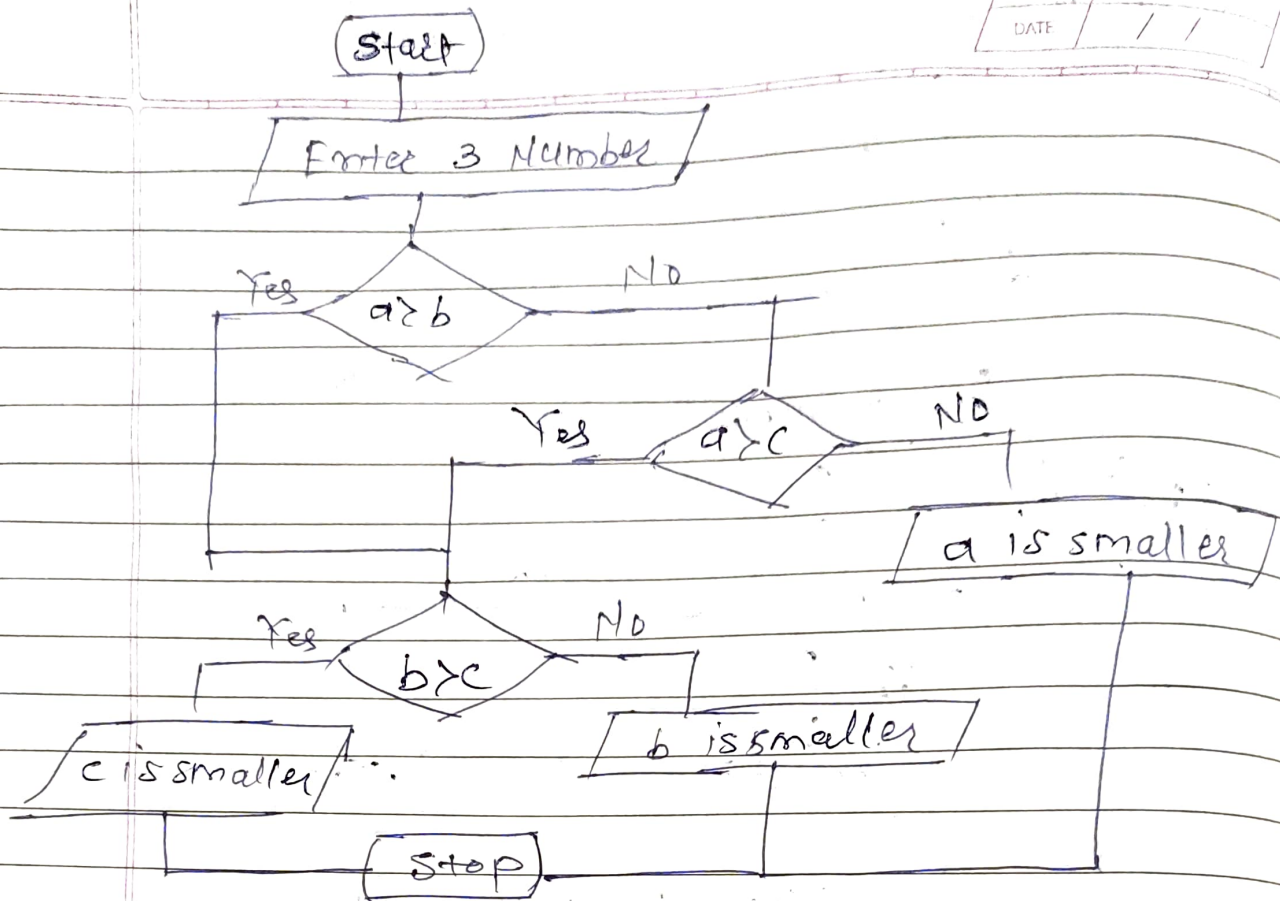 DATE / /
Start
Enter 3 Number
Yes NO
a>b
Yes a>c NO
a is smaller
Yes NO
b>c
c is smaller b is smaller
Stop